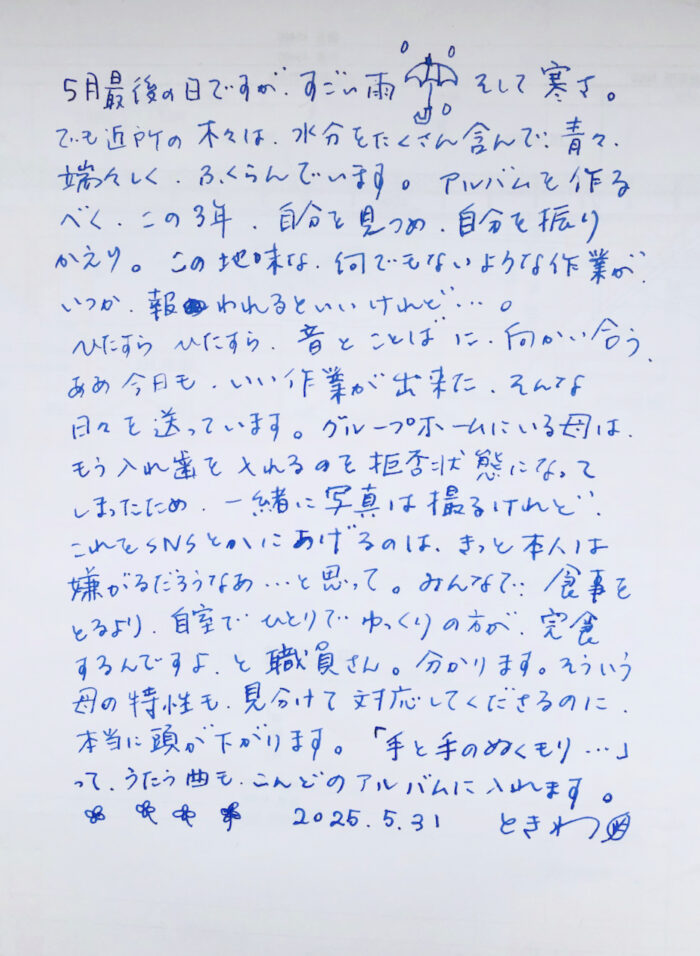 5月最後の日ですが、すごい雨 そして寒さ。
でも近所の木々は、水分をたくさん含んで、青々、
端々しく、ふくらんでいます。アルバムを作る
べく、この3年、自分を見つめ、自分を振り
かえり。この地味な、何でもないような作業が、
いつか、報われるといいけれど…。
ひたすら ひたすら、音とことばに、向かい合う、
ああ今日も、いい作業が出来た、そんな
日々を送っています。グループホームにいる母は、
もう入れ歯を入れるのを拒否状態になって
しまったため、一緒に写真は撮るけれど、
これをSNSとかにあげるのは、きっと本人は
嫌がるだろうなあ…と思って。みんなで、食事を
とるより、自室でひとりでゆっくりの方が、完食
するんですよ、と職員さん。分かります。そういう
母の特性も、見分けて対応してくださるのに、
本当に頭が下がります。「手と手のぬくもり…」
って、うたう曲も、こんどのアルバムに入れます。
2025.5.31 ときわ